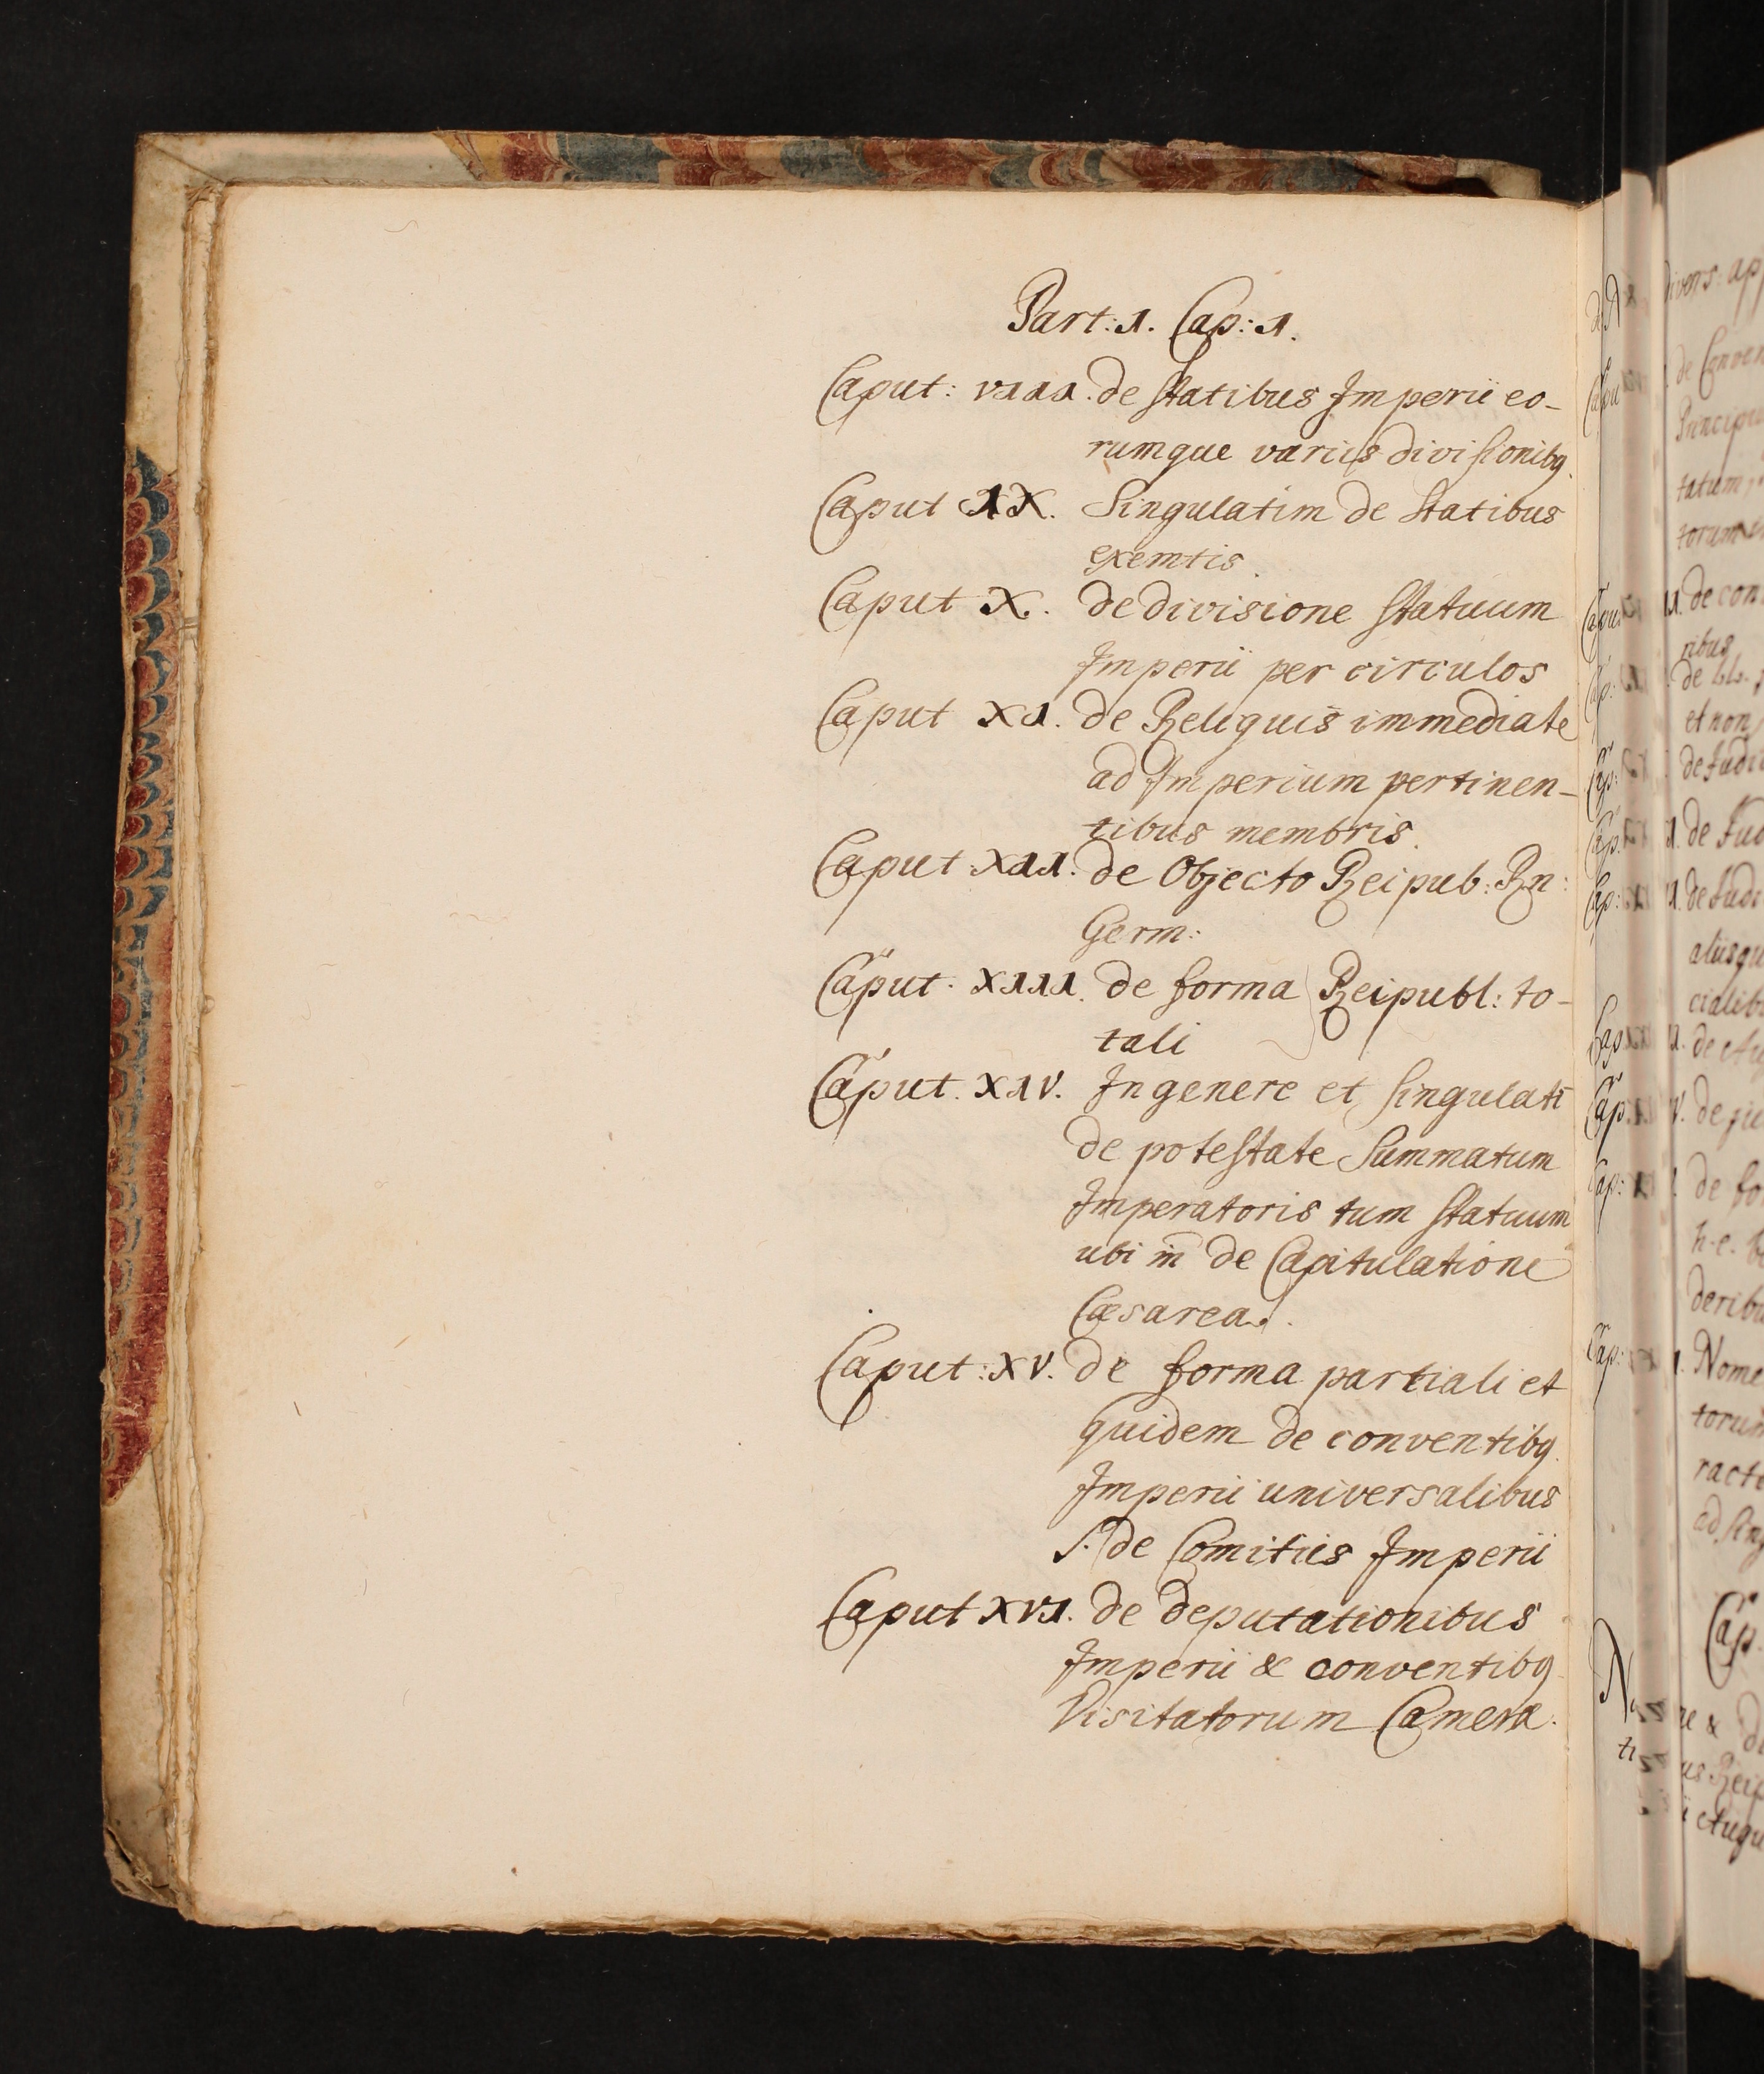 Part: 1. Cap: 1.
Caput: VIII. de statibus Imperii eo-
rumque variis divisionibq.
Caput IX. Singulatim de statibus
exemtis.
Caput X. de divisione statuum
Imperii per circulos
Caput XI. de Reliquis immediate
ad Imperium pertinen-
tibus membris.
Caput XII. de Objecto Reipub: Rn:
Germ:
Caput. XIII. de forma Reipubl: to-
tali
Caput. XIV. In genere et singulatī
de potestate Summa tum
Imperatoris tum statuum
ubi de Capitulatione
Cæsarea.
Caput: XV. de forma partiali et
quidem de conventibq.
Imperii universalibus
s. de Comitiis Imperii
Caput XVI. de deputationibus
Imperii & conventibq
Visitatorum Cameræ.